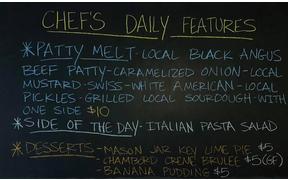 CHEF'S DAILY FEATURES
*PATTY MELT-LOCAL BLACK ANGUS
BEEF PATTY-CARAMELIZED ONION-LOCAL
MUSTARD-SWISS-WHITE AMERICAN-LOCAL
PICKLES-GRILLED LOCAL SOURDOUGH-WITH
ONE SIDE $10
*SIDE OF THE DAY-ITALIAN PASTA SALAD
*DESSERTS-MASON JAR KEY LIME PIE $5
-CHAMBORD CREME BRULEE $5(GF)
-BANANA PUDDING $5